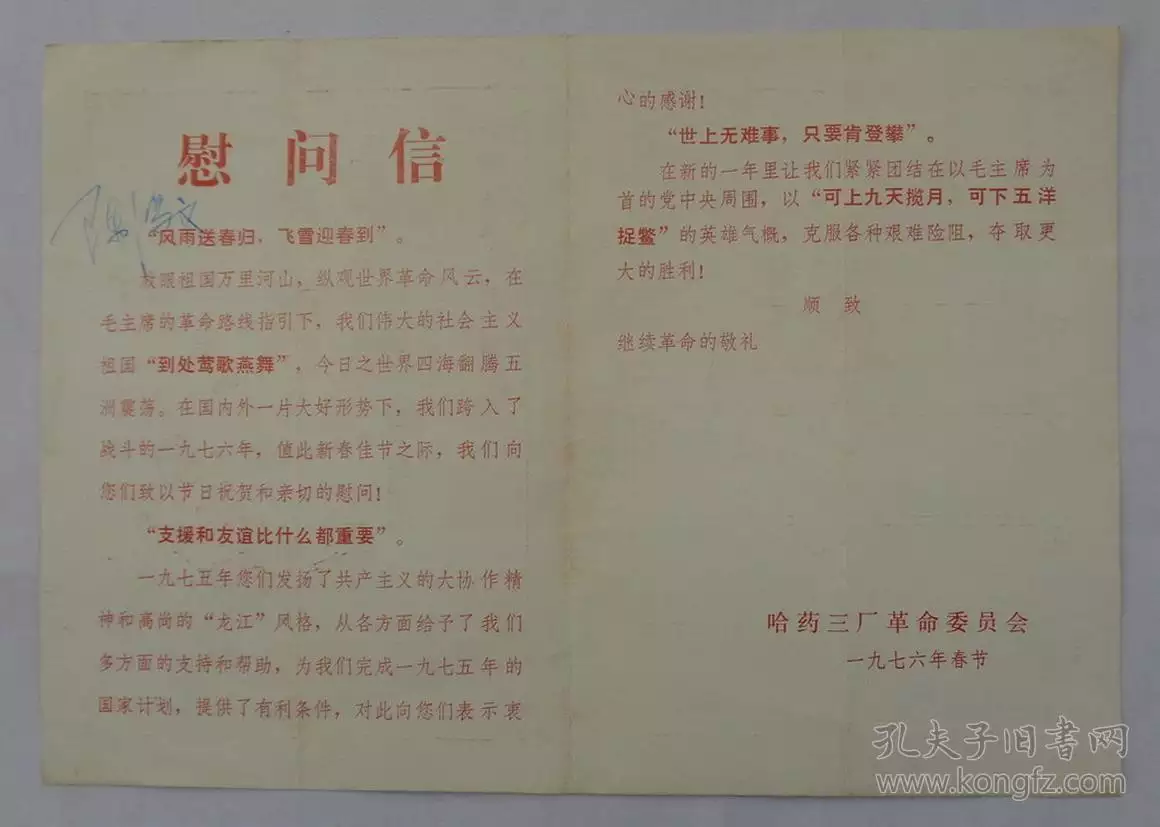 慰问信
“风雨送春归，飞雪迎春到”。
放眼祖国万里河山，纵观世界革命风云，在
毛主席的革命路线指引下，我们伟大的社会主义
祖国“到处莺歌燕舞”，今日之世界四海翻腾五
洲震荡。在国内外一片大好形势下，我们跨入了
战斗的一九七六年，值此新春佳节之际，我们向
您们致以节日祝贺和亲切的慰问！
“支援和友谊比什么都重要”。
一九七五年您们发扬了共产主义的大协作精
神和高尚的“龙江”风格，从各方面给予了我们
多方面的支持和帮助，为我们完成一九七五年的
国家计划，提供了有利条件，对此向您们表示衷
心的感谢！
“世上无难事，只要肯登攀”。
在新的一年里让我们紧紧团结在以毛主席为
首的党中央周围，以“可上九天揽月，可下五洋
捉鳖”的英雄气概，克服各种艰难险阻，夺取更
大的胜利！
顺致
继续革命的敬礼
哈药三厂革命委员会
一九七六年春节
孔夫子旧书网
www.kongfz.com